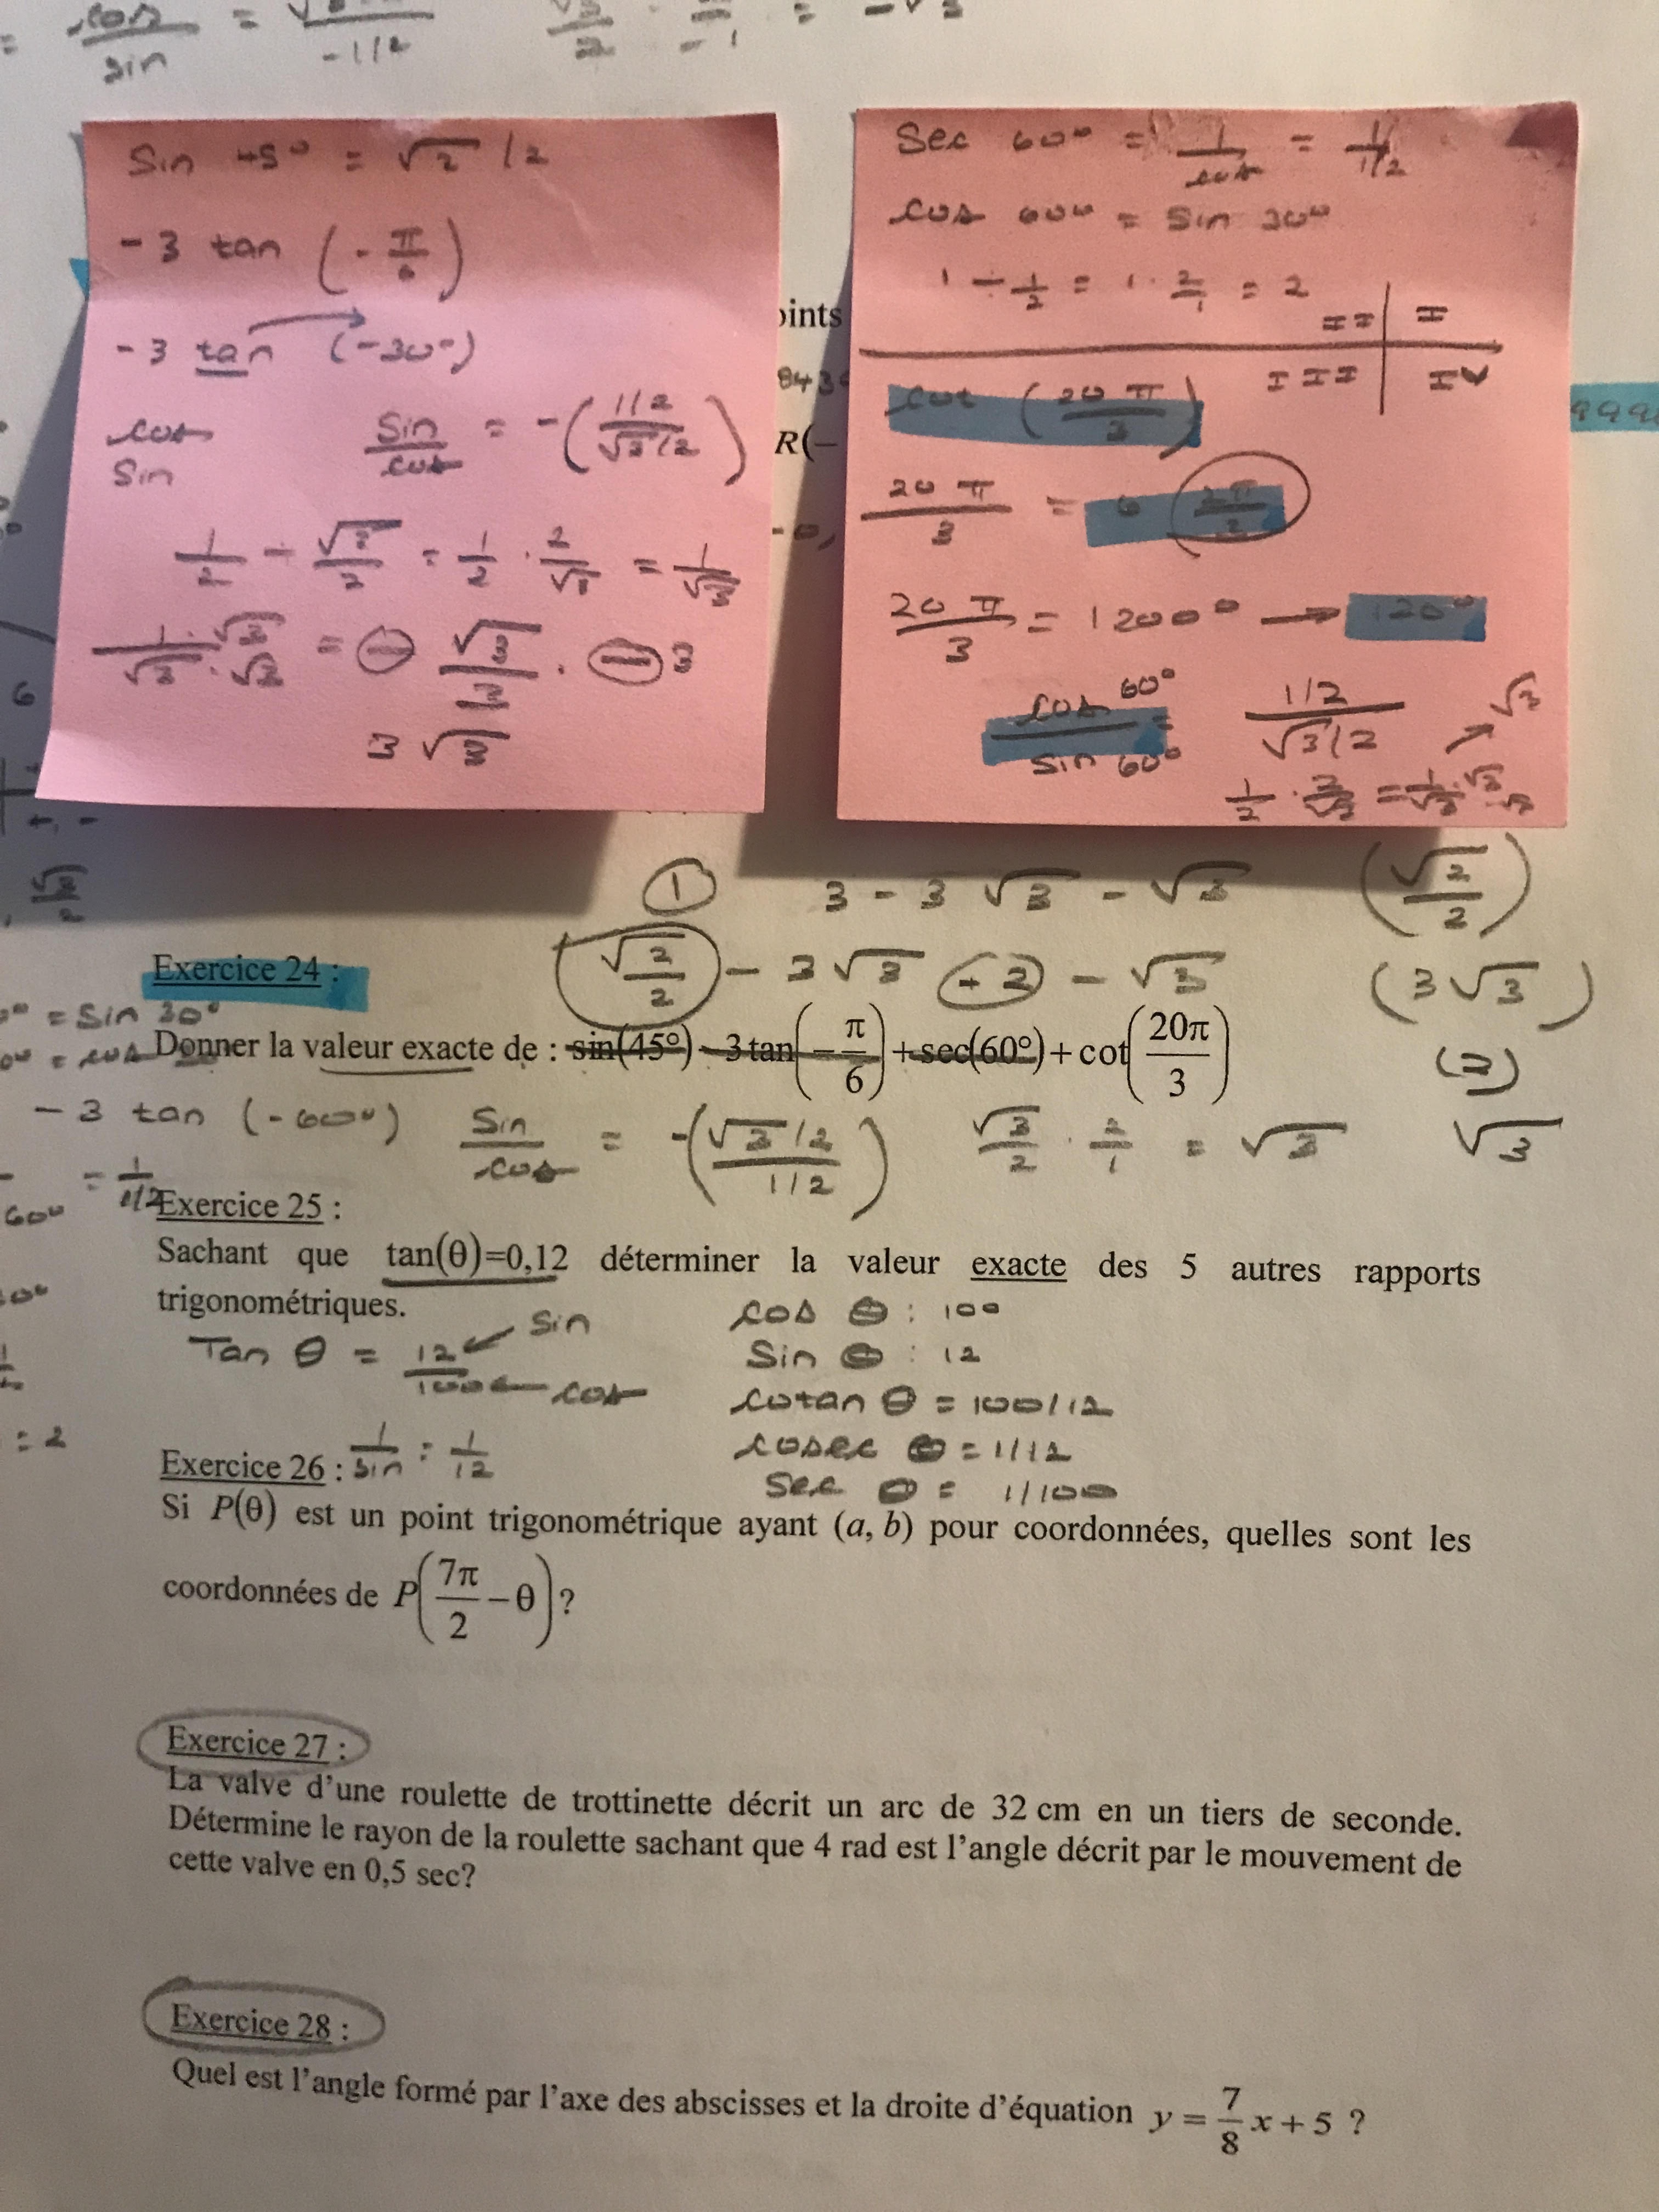 = cos/sin = -1/2
Sin 45° = √2 /2
-3 tan (-π/6)
-3 tan (-30°)
cos
Sin
Sin/cos = -(1/2 / √3/2)
1/2 ÷ √3/2 = 1/2 · 2/√3 = 1/√3
1·√3 / √3·√3 = - √3/3 · - 3
3 √3
Sec 60° = 1/cos = 1/1/2
cos 60° = Sin 30°
1 ÷ 1/2 = 1 · 2/1 = 2
II I
III IV
cot (20 π/3)
20 π/3 = 6 2π/3
20 π/3 = 1200° → 120°
cos 60°/sin 60° = 1/2 / √3/2
√3
1/2 · 2/√3 = 1/√3 · √3/√3
oints
R(-
6
+, -
① 3 - 3 √3 - √3 (√2/2)
√2/2 - 3 √3 + 2 - √3 (3√3)
Exercice 24 :
= Sin 30°
= cos
Donner la valeur exacte de : sin(45°) - 3 tan(-π/6) + sec(60°) + cot(20π/3)
(2)
-3 tan (-60°) Sin/cos = -(√3/2 / 1/2) √3/2 · 2/1 = √3 √3
= 1/1/2
60°
Exercice 25 :
Sachant que tan(θ)=0,12 déterminer la valeur exacte des 5 autres rapports
trigonométriques.
Tan θ = 12/100 ← sin ← cos
cos θ : 100
Sin θ : 12
cotan θ = 100/12
cosec θ = 1/12
Sec θ = 1/100
: 2
Exercice 26 : 1/sin = 1/12
Si P(θ) est un point trigonométrique ayant (a, b) pour coordonnées, quelles sont les
coordonnées de P(7π/2 - θ) ?
Exercice 27 :
La valve d'une roulette de trottinette décrit un arc de 32 cm en un tiers de seconde.
Détermine le rayon de la roulette sachant que 4 rad est l'angle décrit par le mouvement de
cette valve en 0,5 sec?
Exercice 28 :
Quel est l'angle formé par l'axe des abscisses et la droite d'équation y = 7/8 x + 5 ?